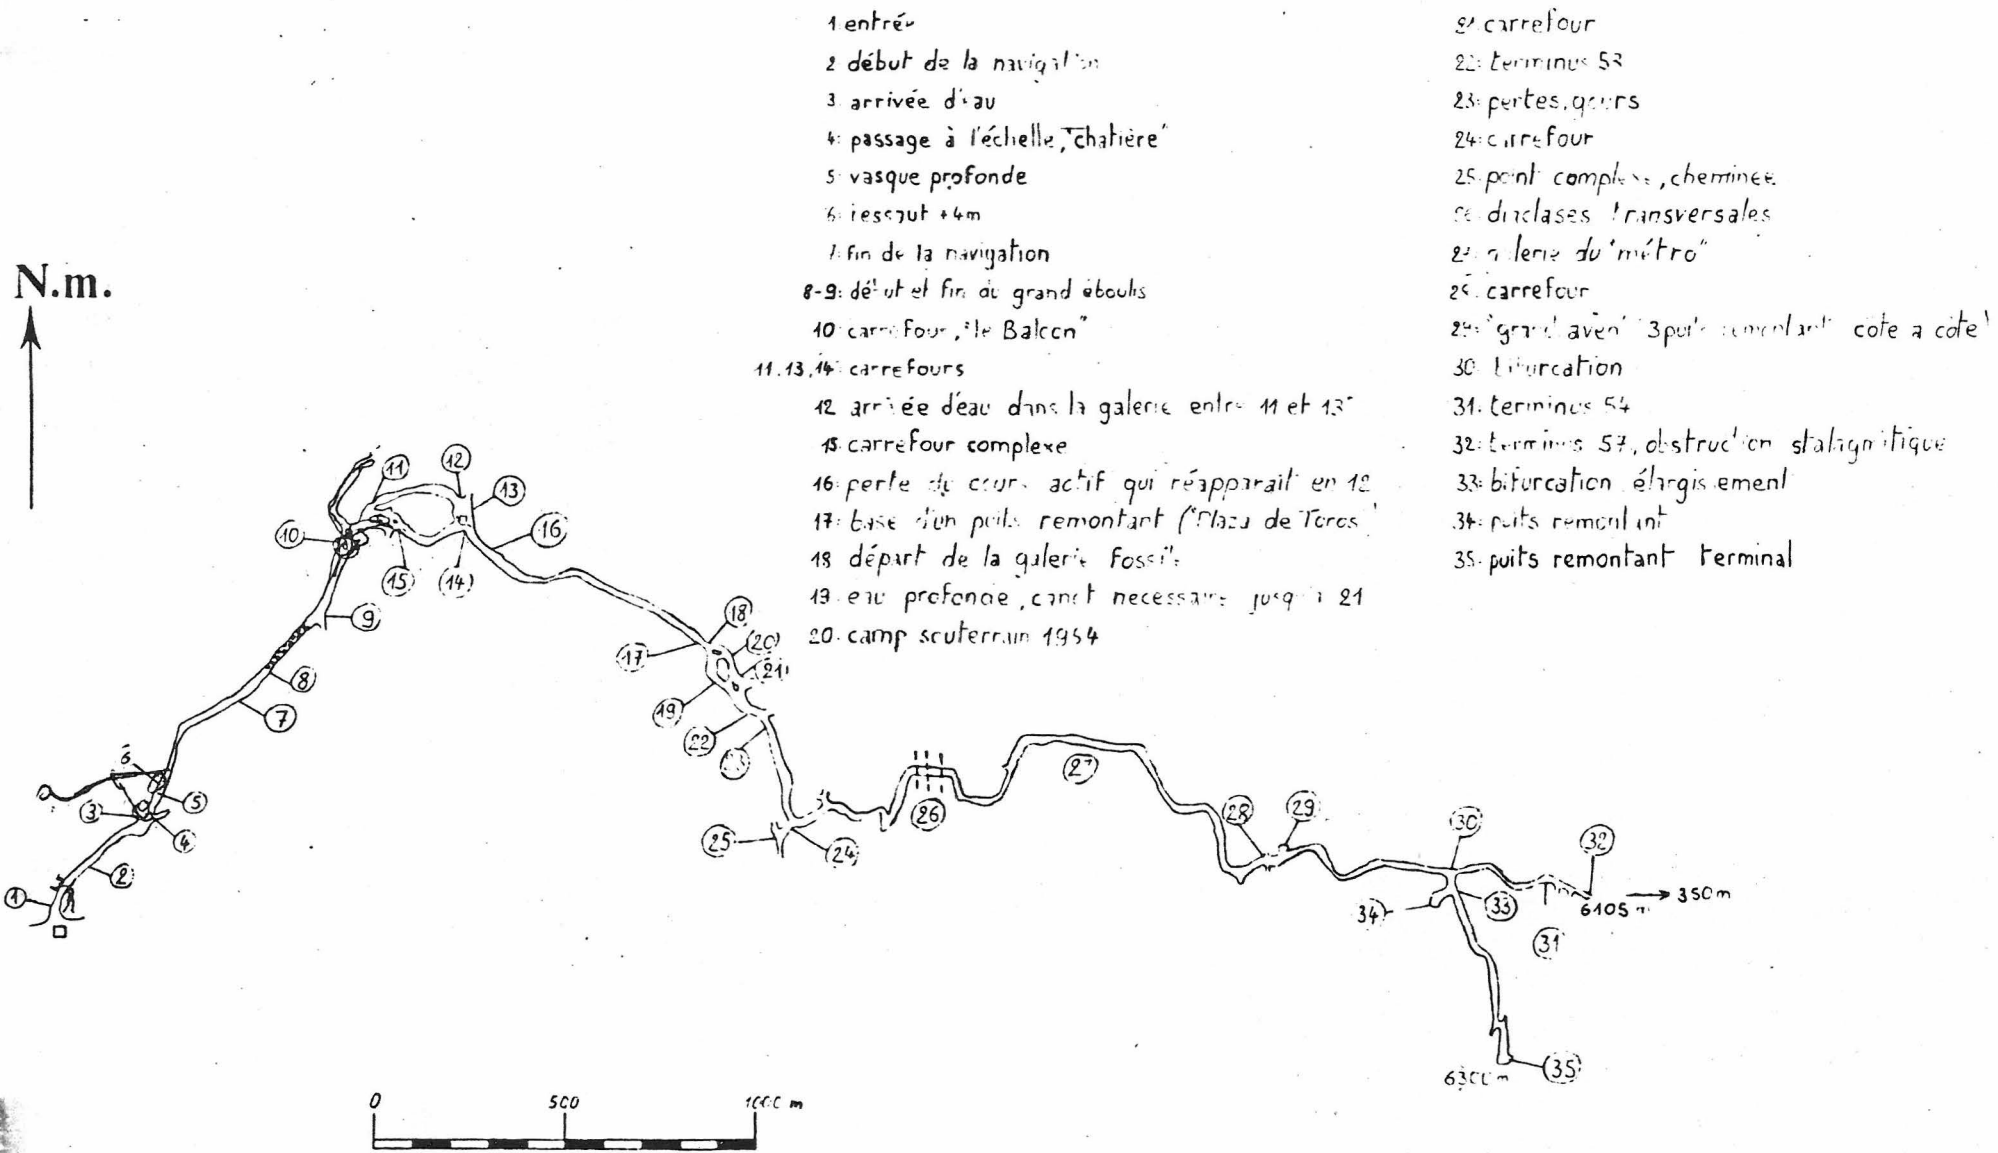 1 entrée
2 début de la navigation
3 arrivée d'eau
4: passage à l'échelle, "chatière"
5 vasque profonde
6: ressaut +4m
7: fin de la navigation
8-9: début et fin du grand éboulis
10 carrefour, "le Balcon"
11.13,14: carrefours
12 arrivée d'eau dans la galerie entre 11 et 13
15 carrefour complexe
16: perte du cours actif qui réapparait en 12
17: base d'un puits remontant ("Plaza de Toros")
18 départ de la galerie fossile
19 eau profonde, canot necessaire jusqu'à 21
20. camp souterrain 1954
21 carrefour
22: terminus 53
23: pertes, gours
24: carrefour
25. point complexe, cheminée
26 diaclases transversales
27 galerie du "métro"
28. carrefour
29: "grand aven" 3 puits remontant cote a cote
30 bifurcation
31. terminus 54
32: terminus 57, obstruction stalagmitique
33: bifurcation élargissement
34: puits remontant
35. puits remontant terminal
N.m.
11
12
13
10
16
15
14
9
18
20
17
21
8
19
7
22
23
6
27
5
3
26
28
29
30
32
4
25
24
2
1
34
33
6105 m
350 m
31
6300 m
35
0
500
1000 m